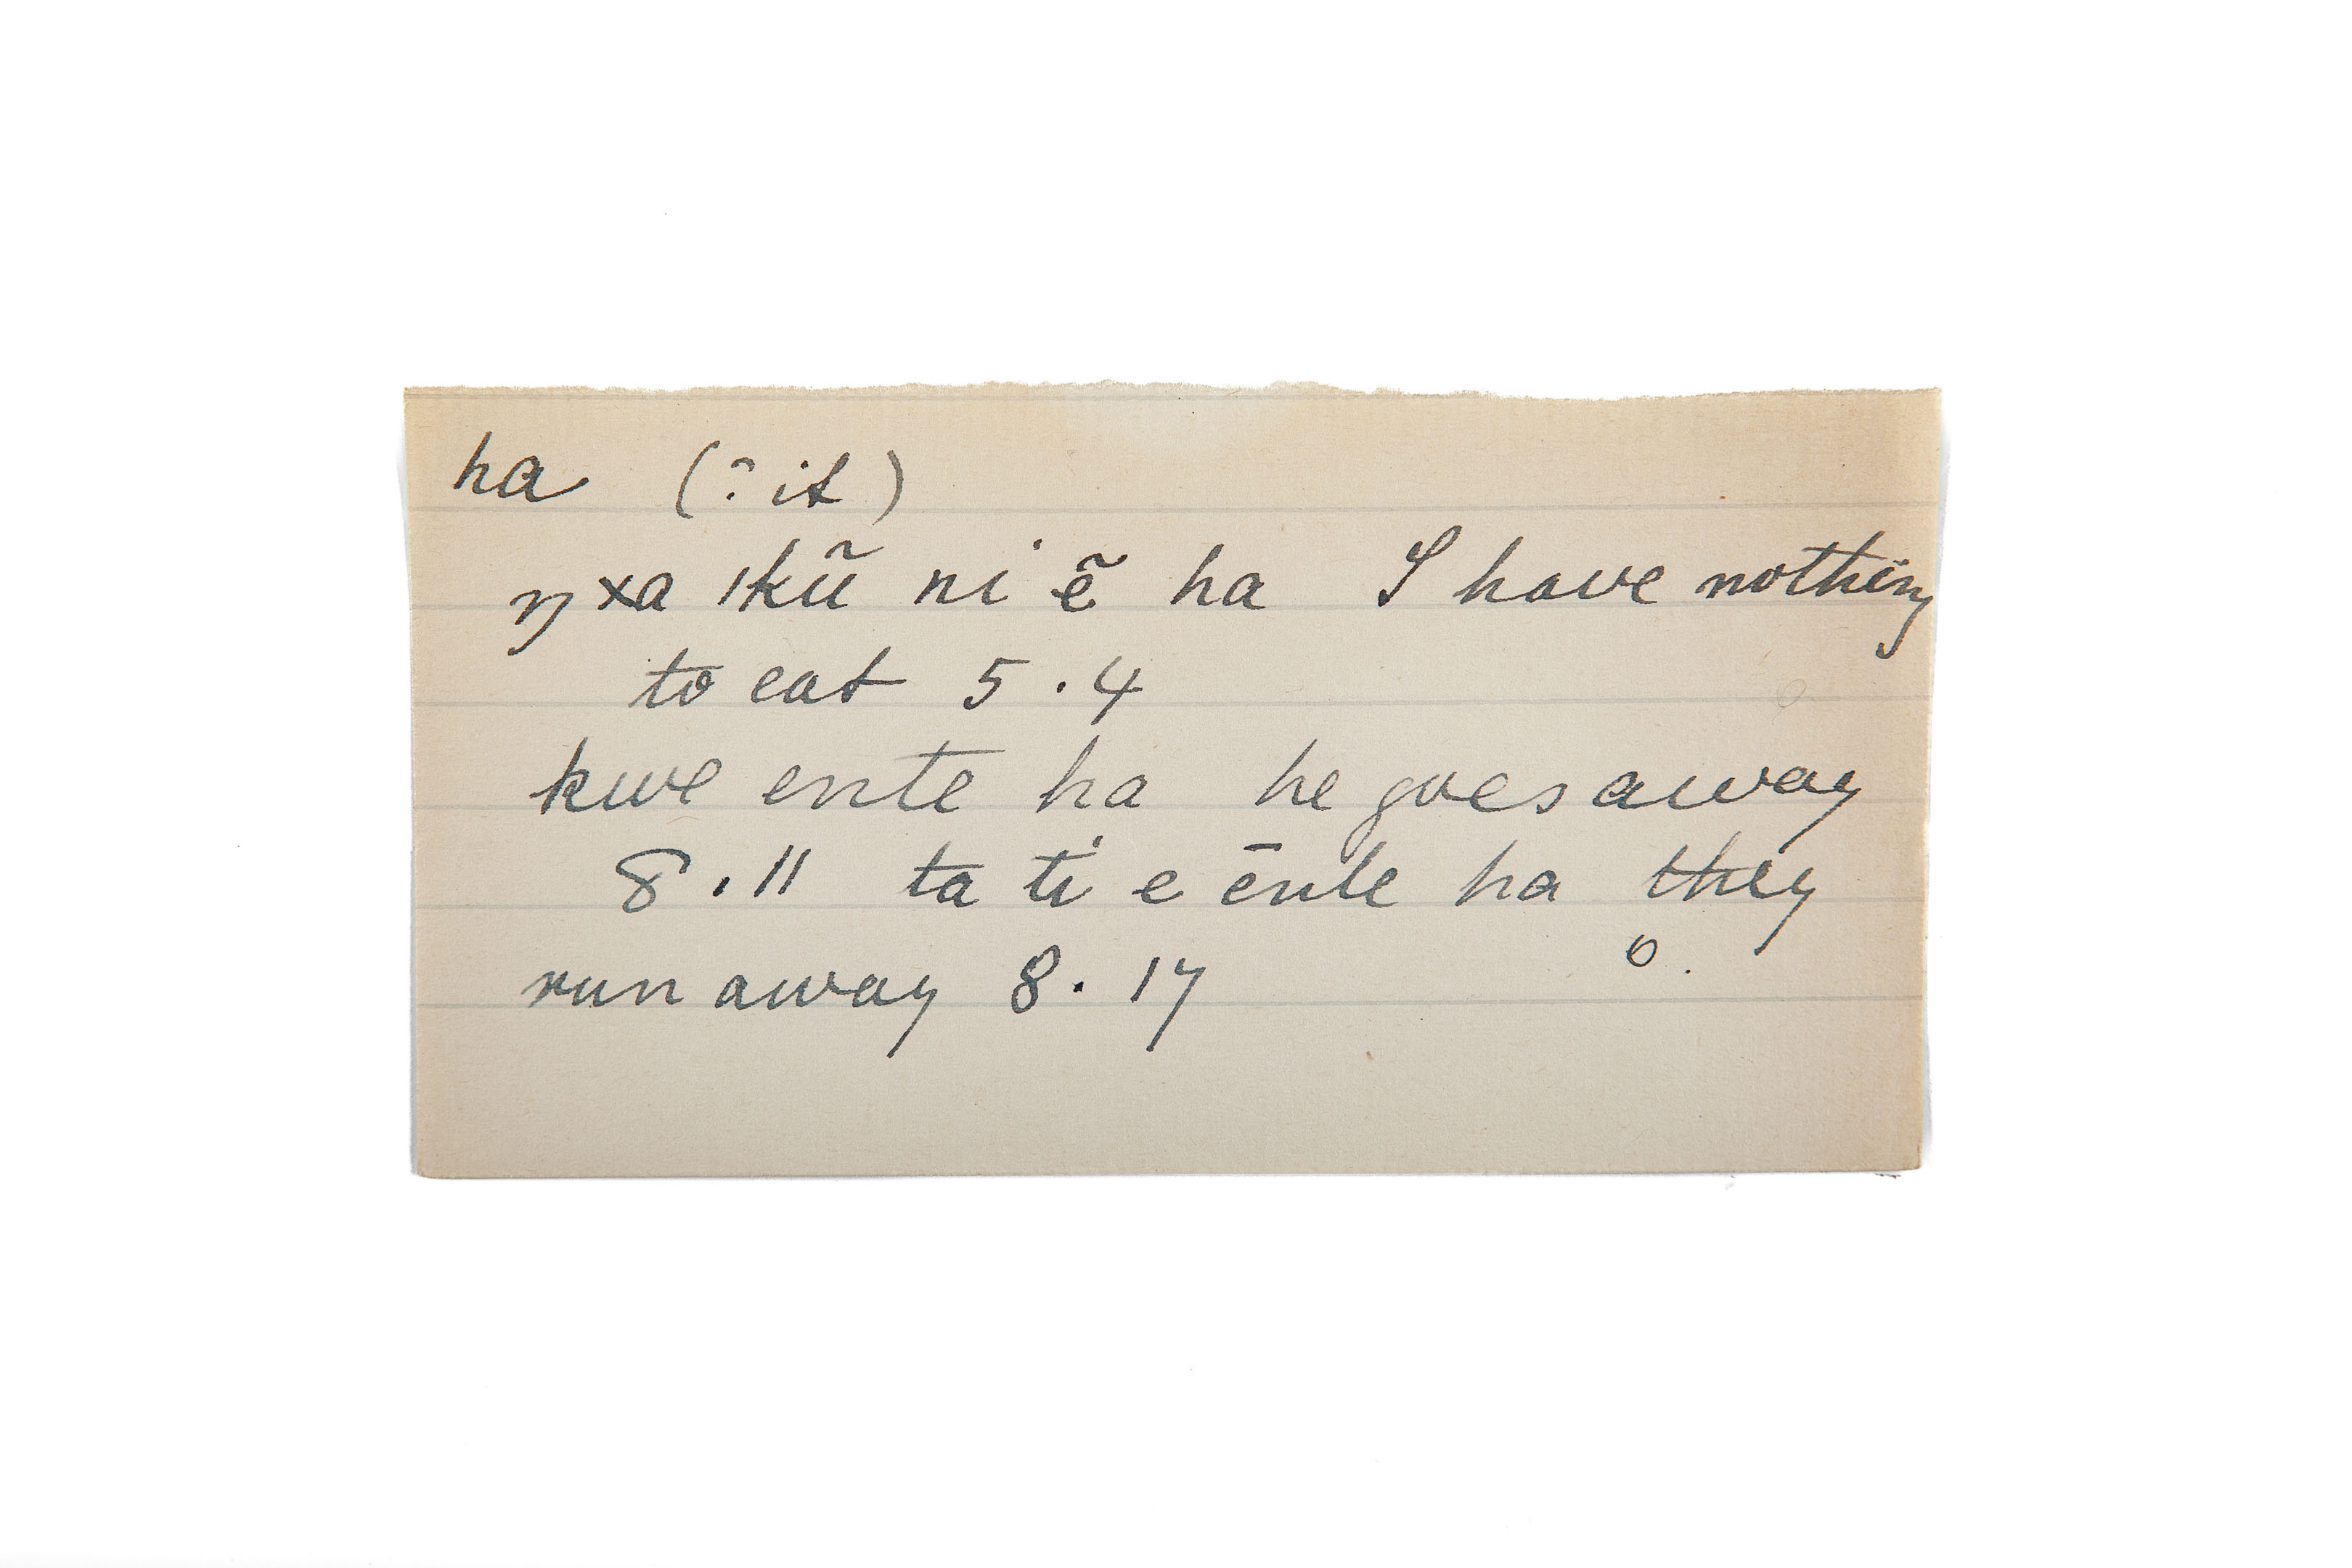 ha (? it)
ŋ xa ıkũ ni ẽ ha I have nothing
to eat 5.4
kwe ente ha he goes away
8.11 ta ti e ēnte ha they
run away 8.17